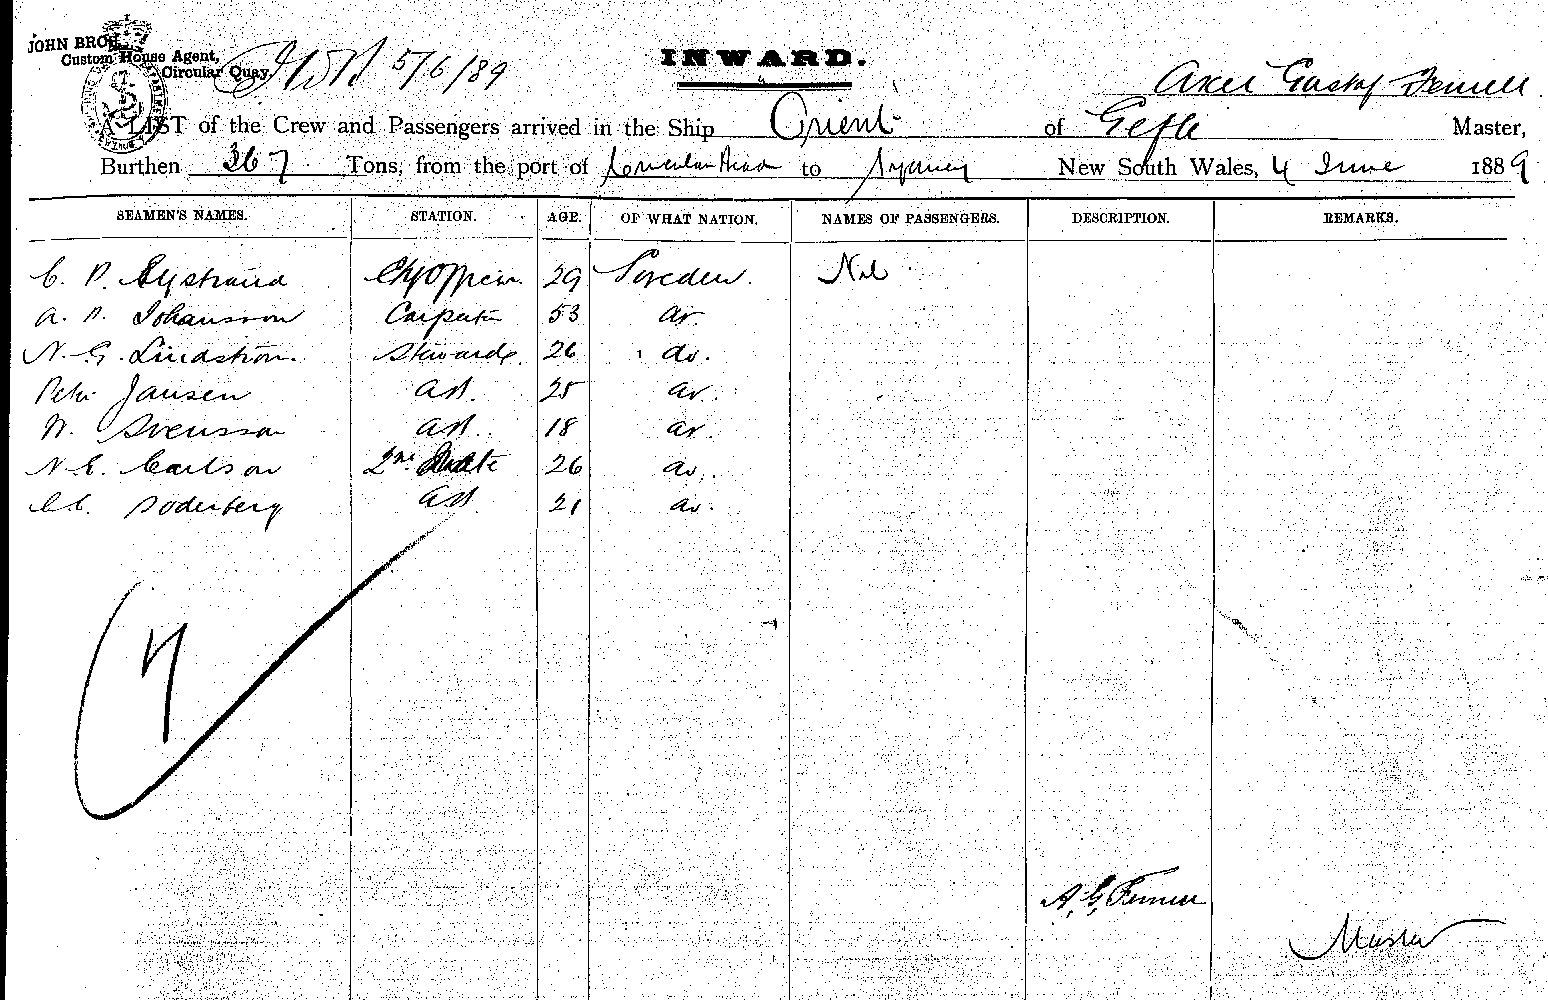 JOHN BRO
Custom House Agent,
Circular Quay,
5/6/89
INWARD.
Axel Gustaf
A LIST of the Crew and Passengers arrived in the Ship Orient of Gefle Master,
Burthen 367 Tons, from the port of to Sydney New South Wales, 4 June 1889
SEAMEN'S NAMES. STATION. AGE. OF WHAT NATION. NAMES OF PASSENGERS. DESCRIPTION. REMARKS.
C. 29 Sweden. Nil
A. P. Johansson Carpenter 53 do.
N. G. Lindstrom. Steward 26 do.
Peter Jansen AB. 25 do.
N. Svensson AB. 18 do.
N. E. Carlson 2nd Mate 26 do.
Soderberg AB 21 do.
7
A. G.
Master